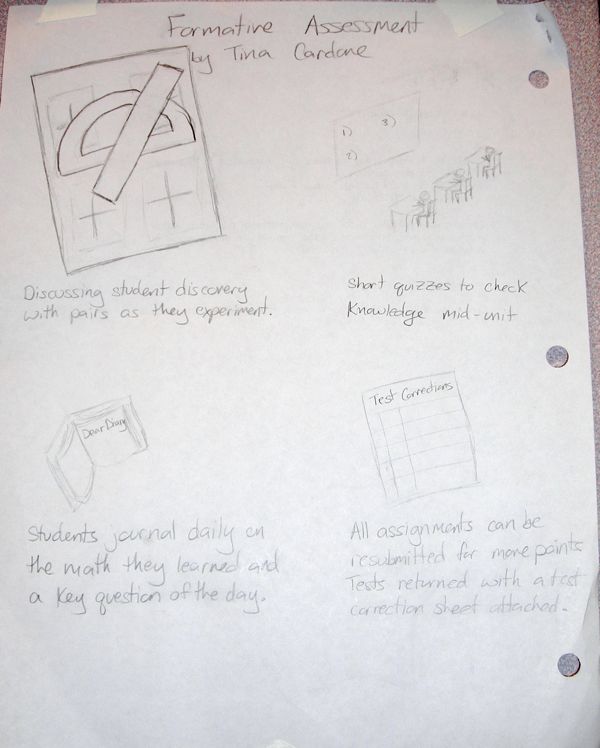 Formative Assessment
by Tina Cardone
1)
3)
2)
Discussing student discovery
with pairs as they experiment.
Short quizzes to check
Knowledge mid-unit
Dear Diary
Test Corrections
Students journal daily on
the math they learned and
a key question of the day.
All assignments can be
resubmitted for more points
Tests returned with a test
correction sheet attached.